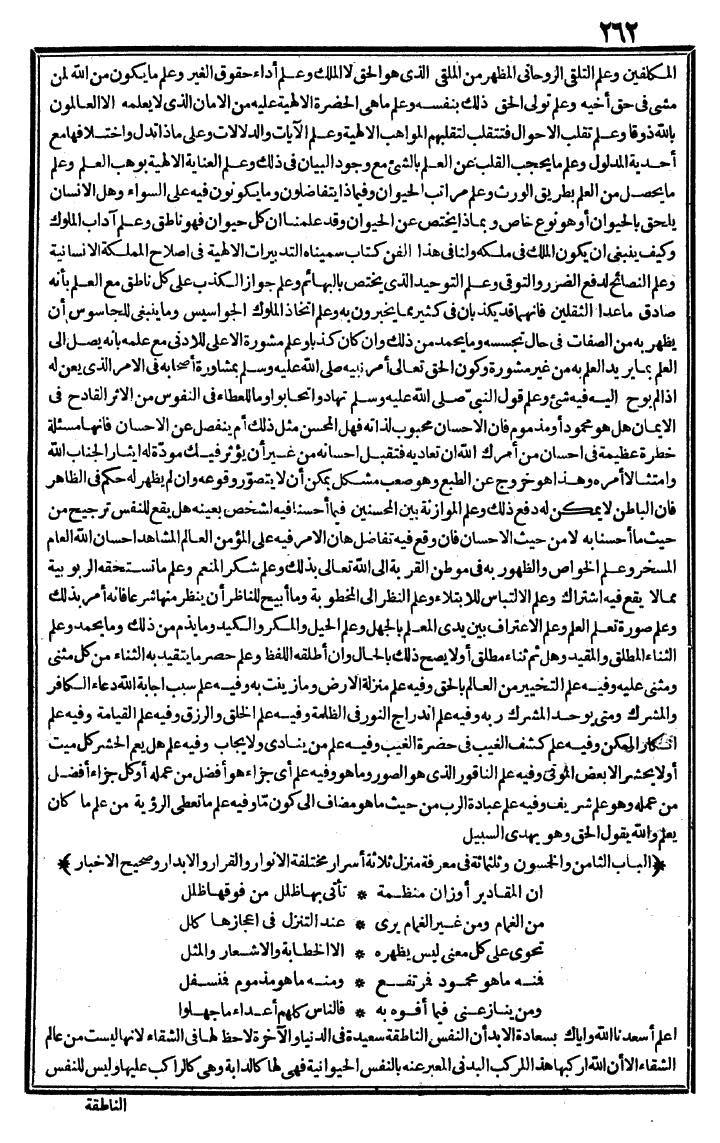 ٢٦٢
المكلفين وعلم التلقى الروحانى المظهر من الملقى الذى هو الحق لا الملك وعلم أداء حقوق الغير وعلم ما يكون من الله لمن
مشى فى حق أخيه وعلم تولى الحق ذلك بنفسه وعلم ماهى الحضرة الالهية عليه من الامان الذى لا يعلمه الا العالمون
بالله ذوقا وعلم تقلب الاحوال فتتقلب لتقلبهم المواهب الالهية وعلم الآيات والدلالات وعلى ماذا تدل واختلافها مع
أحدية المدلول وعلم ما يحجب القلب عن العلم بالشئ مع وجود البيان فى ذلك وعلم العناية الالهية بوهب العلم وعلم
ما يحصل من العلم بطريق الورث وعلم مراتب الحيوان وفيما ذا يتفاضلون وما يكونون فيه على السواء وهل الانسان
يلحق بالحيوان أو هو نوع خاص وبماذا يختص عن الحيوان وقد علمنا ان كل حيوان فهو ناطق وعلم آداب الملوك
وكيف ينبغى ان يكون الملك فى ملكه ولنا فى هذا الفن كتاب سميناه التدبيرات الالهية فى اصلاح المملكة الانسانية
وعلم النصائح لدفع الضرر والتوقى وعلم التوحيد الذى يختص بالبهائم وعلم جواز الكذب على كل ناطق مع العلم بأنه
صادق ماعدا الثقلين فانهما قد يكذبان فى كثير مما يخبرون به وعلم اتخاذ الملوك الجواسيس وما ينبغى للجاسوس أن
يظهر به من الصفات فى حال تجسسه وما يحمد من ذلك وان كان كذبا وعلم مشورة الاعلى للادنى مع علمه بانه يصل الى
العلم بما يريد العلم به من غير مشورة وكون الحق تعالى أمر نبيه صلى الله عليه وسلم بمشاورة أصحابه فى الامر الذى يعن له
اذا لم يوح اليه فيه شئ وعلم قول النبى صلى الله عليه وسلم تهادوا تحابوا وما للعطاء فى النفوس من الاثر القادح فى
الايمان هل هو محمود أو مذموم فان الاحسان محبوب لذاته فهل المحسن مثل ذلك أم ينفصل عن الاحسان فانها مسئلة
خطرة عظيمة فى احسان من أمرك الله ان تعاديه فتقبل احسانه من غير أن يؤثر فيك مودة له ايثار الجناب الله
وامتثالا أمره وهذا هو خروج عن الطبع وهو صعب مشكل يمكن أن لا يتصور وقوعه وان لم يظهر له حكم فى الظاهر
فان الباطن لا يمكن له دفع ذلك وعلم الموازنة بين المحسنين فيما أحسنا فيه لشخص بعينه هل يقع للنفس ترجيح من
حيث ما أحسنا به لا من حيث الاحسان فان وقع فيه تفاضل هان الامر فيه على المؤمن العالم المشاهد احسان الله العام
المسخر وعلم الخواص والظهور به فى موطن القربة الى الله تعالى بذلك وعلم شكر المنعم وعلم ما تستحقه الربوبية
مما لا يقع فيه اشتراك وعلم الالتباس للابتلاء وعلم النظر الى المخطوبة وما أبيح للناظر أن ينظر منها شرعا فانه أمر بذلك
وعلم صورة تعلم العلم وعلم الاعتراف بين يدى المعلم بالجهل وعلم الحيل والمكر والكيد وما يذم من ذلك وما يحمد وعلم
الثناء المطلق والمقيد وهل ثم ثناء مطلق أو لا يصح ذلك بالحال وان أطلقه اللفظ وعلم حصر ما يتقيد به الثناء من كل مثنى
ومثنى عليه وفيه علم التخيير من العالم بالحق وفيه علم منزلة الارض وما زينت به وفيه علم سبب اجابة الله دعاء الكافر
والمشرك ومتى يوحد المشرك ربه وفيه علم اندراج النور فى الظلمة وفيه علم الخلق والرزق وفيه علم القيامة وفيه علم
انكار الممكن وفيه علم كشف الغيب فى حضرة الغيب وفيه علم من ينادى ولا يجاب وفيه علم هل يعم الحشر كل ميت
أو لا يحشر الا بعض الموتى وفيه علم الناقور الذى هو الصور وما هو وفيه علم أى جزاء هو أفضل من عمله أو كل جزاء أفضل
من عمله وهو علم شريف وفيه علم عبادة الرب من حيث ما هو مضاف الى كون مّا وفيه علم ما تعطى الرؤية من علم ما كان
يعلم والله يقول الحق وهو يهدى السبيل
﴿الباب الثامن والخمسون وثلثمائة فى معرفة منزل ثلاثة أسرار مختلفة الانوار والقرار والابدار وصحيح الاخبار﴾
ان المقادير أوزان منظمة * تأتى بها ظلل من فوقها ظلل
من الغمام ومن غير الغمام يرى * عند التنزل فى اعجازها كلل
تحوى على كل معنى ليس يظهره * الا الخطابة والاشعار والمثل
فمنه ما هو محمود فترتفع * ومنه ما هو مذموم فنسفل
ومن ينازعنى فيما أفوه به * فالناس كلهم أعداء ما جهلوا
اعلم أسعدنا الله واياك بسعادة الابد أن النفس الناطقة سعيدة فى الدنيا والآخرة لاحظ لها فى الشقاء لانها ليست من عالم
الشقاء الا أن الله اركبها هذا المركب البدنى المعبر عنه بالنفس الحيوانية فهى لها كالدابة وهى كالراكب عليها وليس للنفس
الناطقة